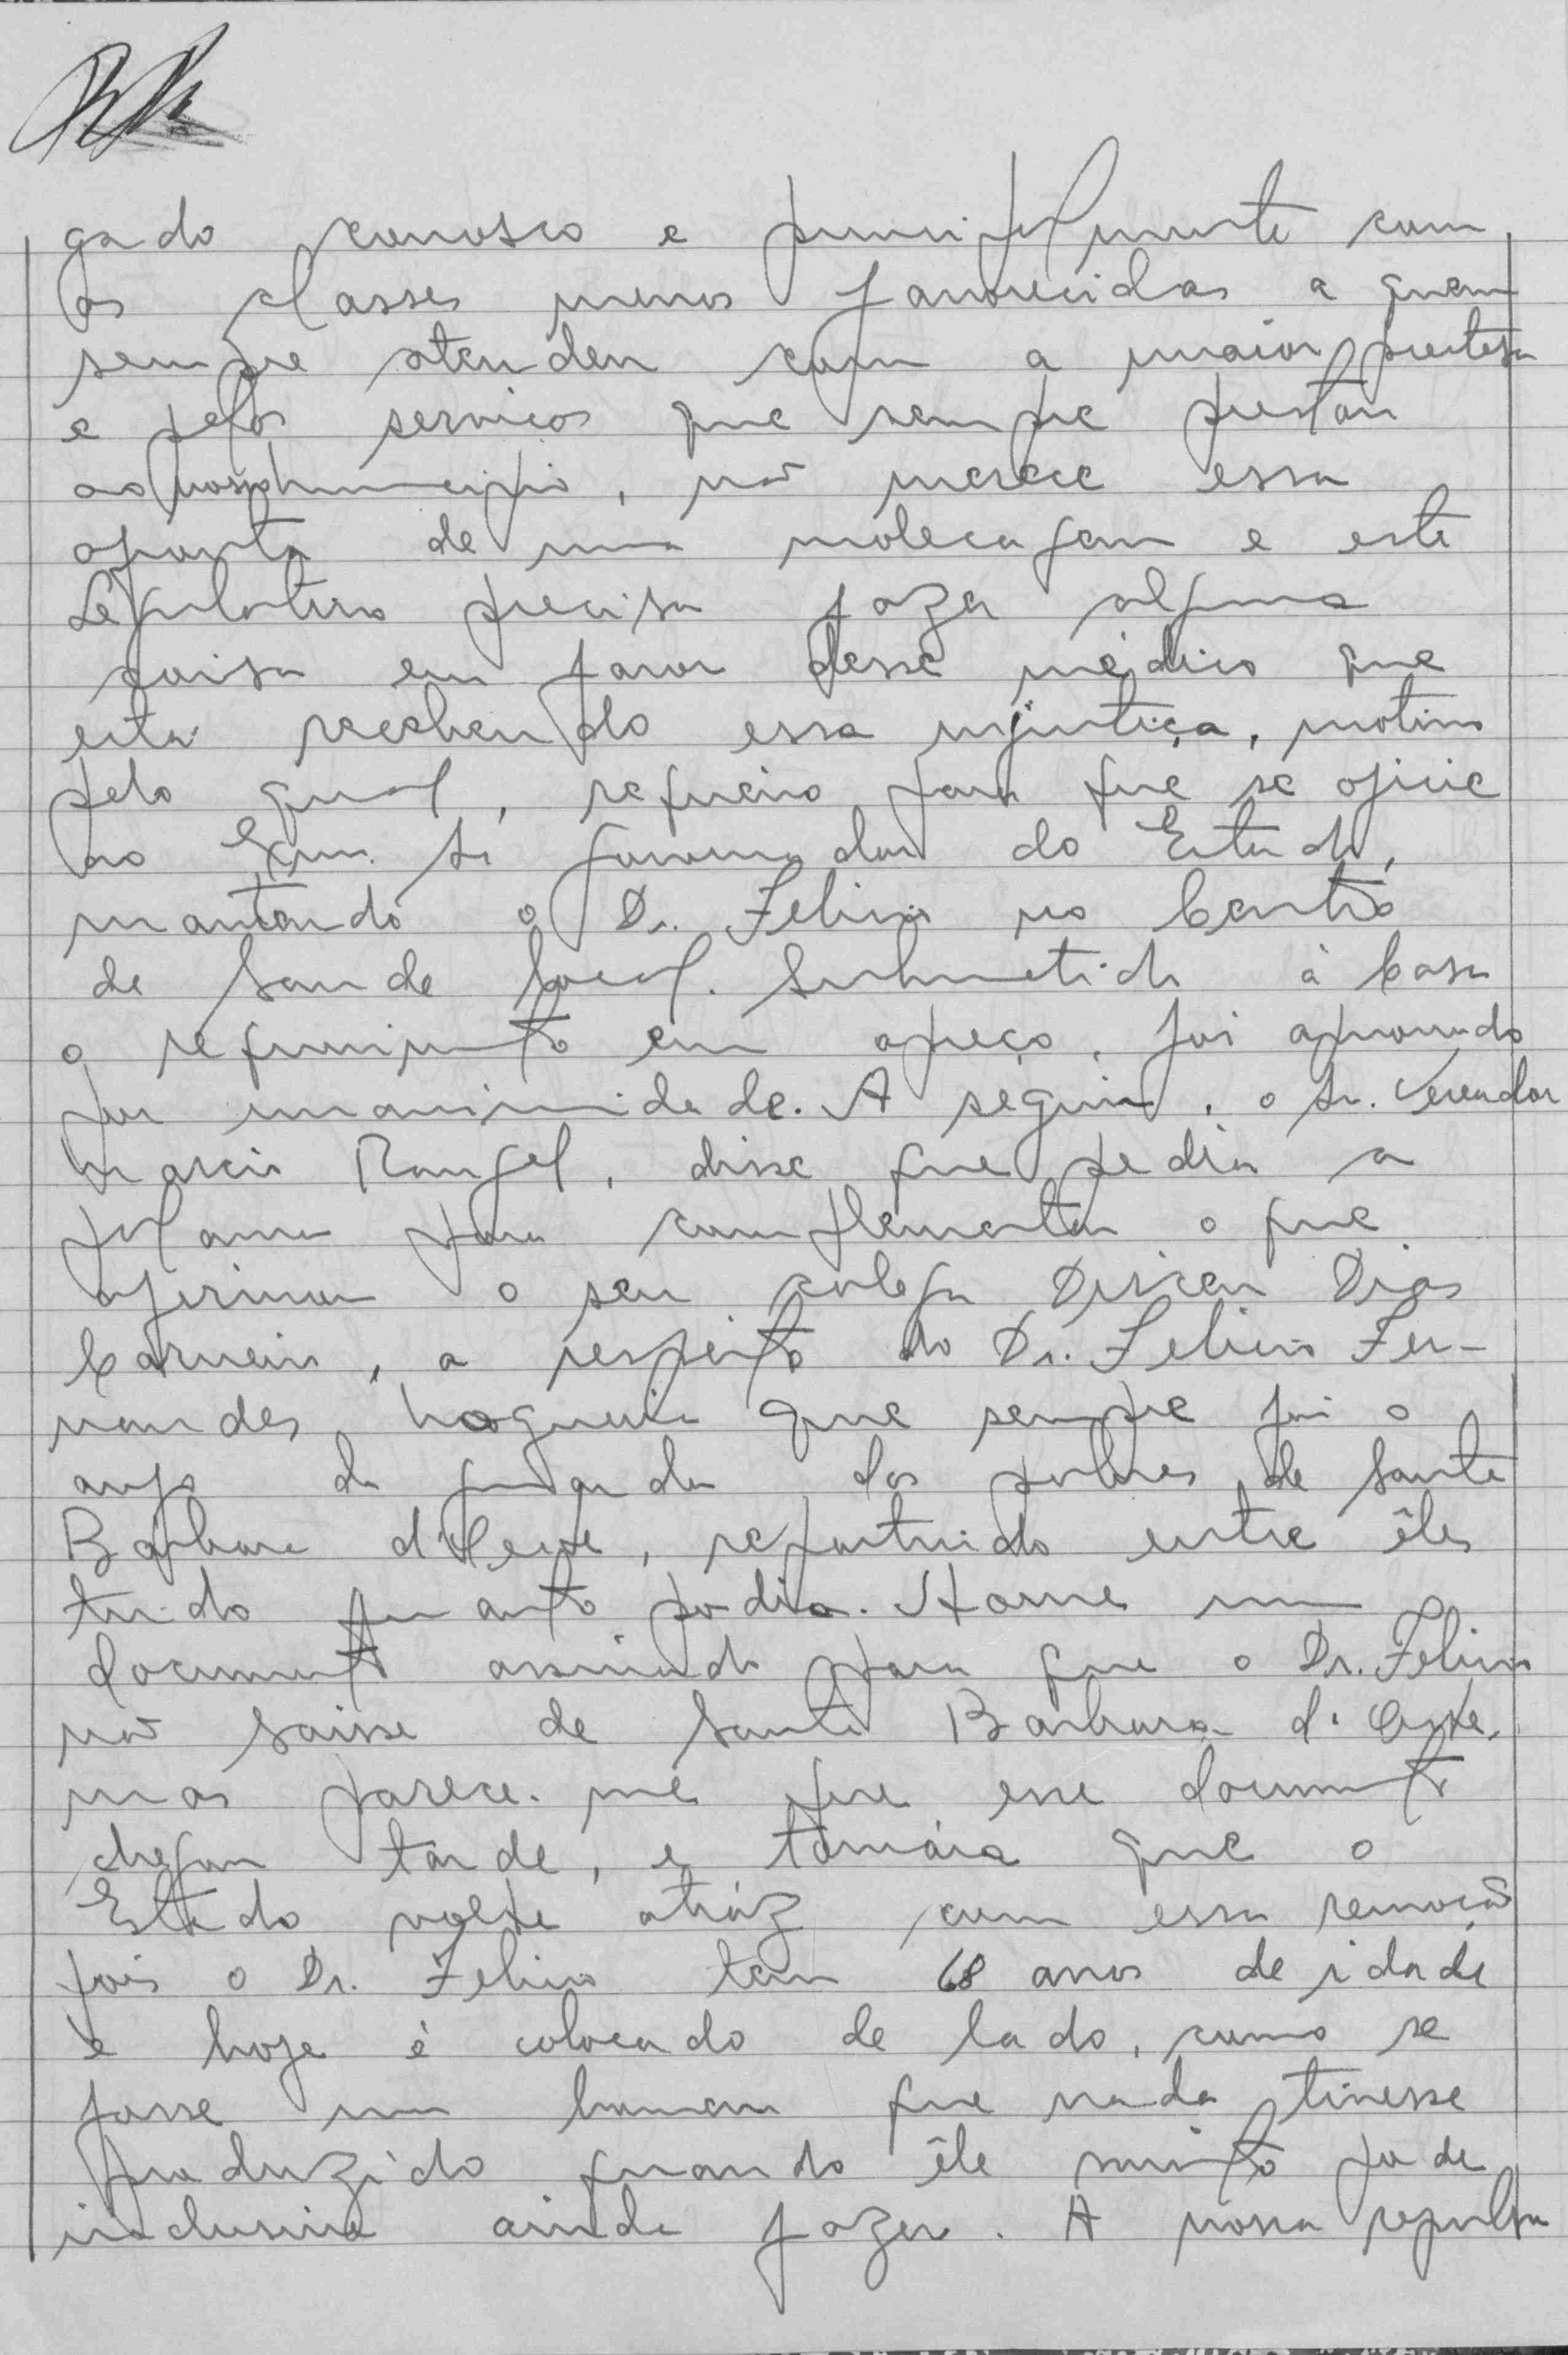 gado conosco e principalmente com
as classes menos favorecidas a quem
sempre atendeu com a maior presteza
e pelos serviços que sempre prestou
ao nosso município, não merece essa
afronta de uma molecagem e este
Legislativo precisa fazer alguma
coisa em favor desse médico que
esta recebendo essa injustiça, motivo
pelo qual, requeiro para que se oficie
ao Exmo. Sr Governador do Estado,
mantendo o Dr. Felicio no Centro
de Saude local. Submetido à Casa
o requerimento em apreço, foi aprovado
por unanimidade. A seguir, o Sr. Vereador
Marcio Rangel, disse que pedia a
palavra para complementar o que
afirmou o seu colega Dirceu Dias
Carneiro, a respeito do Dr. Felicio Fer-
nandes Nogueira que sempre foi o
anjo da guarda dos pobres de Santa
Barbara d'Oeste, repartindo entre êles
tudo quanto podia. Houve um
documento assinado para que o Dr. Felicio
não saisse de Santa Barbara d'Oeste,
mas parece-me que esse documento
chegou tarde, e tomára que o
Estado volte atráz com essa remoção
pois o Dr. Felicio tem 68 anos de idade
e hoje é colocado de lado, como se
fosse um homem que nada tivesse
produzido quando êle muito pode
inclusive ainda fazer. A nossa repulsa